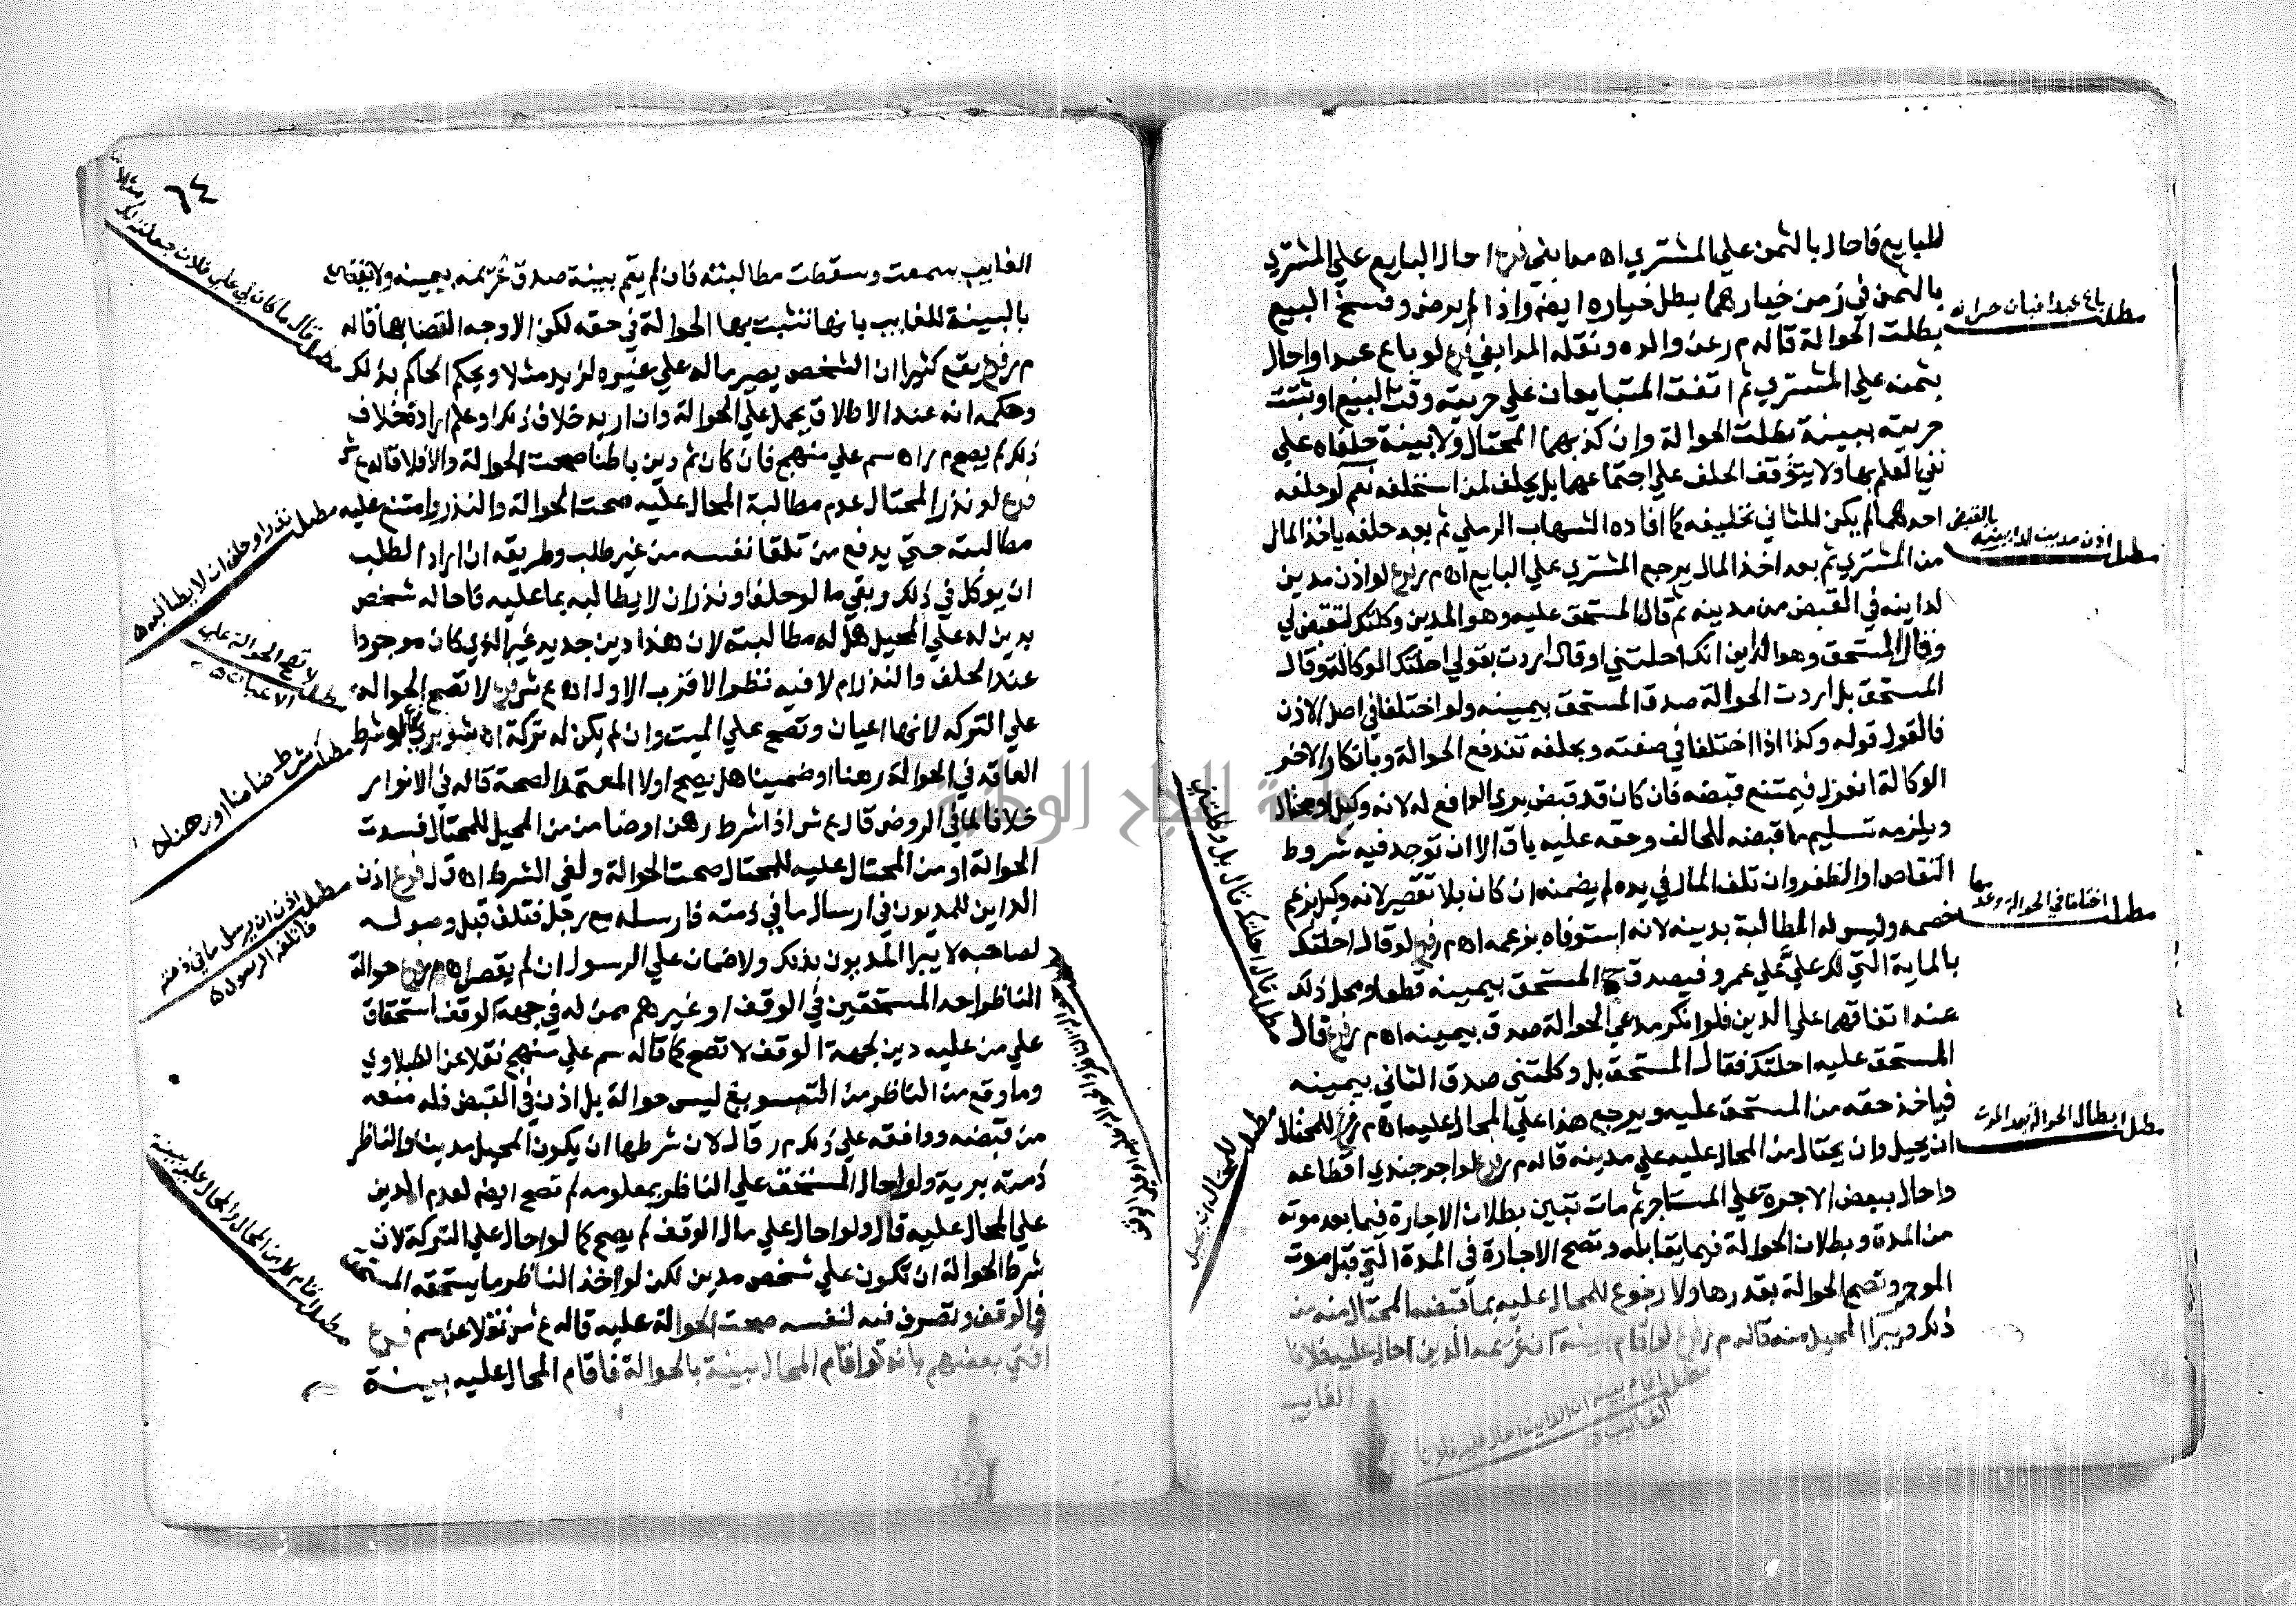 للبايع فاحال بالثمن علي المشتري اه معا بقي فرع احال البايع علي المشتري
بالثمن في زمن خيارهما بطل خياره ايضه واذا لم يرض وفسخ البيع
بطلت الحوالة قاله م ر عن والده ونقله المدابغي فرع لو باع عبدا واحال
بثمنه علي المشتري ثم اتفق المتبايعان علي حريته وقت البيع او ثبتت
حريته ببينة بطلت الحوالة وان كذبهما المحتال ولا بينة حلفاه علي
نفي العلم بها ولا يتوقف الحلف علي اجتماعهما بل يحلف لمن استحلفه نعم لو حلفه
احدهما لم يكن للثاني تحليفه كما افاده الشهاب الرملي ثم بعد حلفه ياخذ المال
من المشتري ثم بعد اخذ المال يرجع المشتري علي البايع اه م ر فرع لو اذن مدين
لداينه في القبض من مدينه ثم قال المستحق عليه وهو المدين وكلتك لتقبض لي
وقال المستحق وهو الداين انك احلتني او قال اردت بقولي احلتك الوكالة وقال
المستحق بل اردت الحوالة صدق المستحق بيمينه ولو اختلفا في اصل الاذن
فالقول قوله وكذا اذا اختلفا في صفته وبحلفه تندفع الحوالة وبانكار الاخر
الوكالة انعزل فيمتنع قبضه فان كان قد قبض بري الدافع له لانه وكيل او محتال
ويلزمه تسليم ما قبضه للحالف وحقه عليه باق الا ان توجد فيه شروط
التقاص او الظفر وان تلف المال في يده لم يضمنه ان كان بلا تقصير لانه وكيل بزعم
خصمه وليس له المطالبة بدينه لانه استوفاه بزعمه اه م ر فرع لو قال احلتك
بالماية التي لك علي علي عمرو فيصدق المستحق بيمينه قطعا ومحل ذلك
عند اتفاقهما علي الدين فلو انكر مدعي الحوالة صدق بيمينه اه م ر فرع قال
المستحق عليه احلتك فقال المستحق بل وكلتني صدق الثاني بيمينه
فياخذ حقه من المستحق عليه ويرجع هذا علي المحال عليه اه م ر فرع للمحتال
ان يحيل وان يحتال من المحال عليه علي مدينه قاله م ر فرع لو اجر جندي اقطاعه
واحال ببعض الاجرة علي المستاجر ثم مات تبين بطلان الاجارة فيما بعد موته
من المدة وبطلان الحوالة فيما يقابله وتصح الاجارة في المدة التي قبل موت
الموجر وتصح الحوالة بقدرها ولا رجوع للمحال عليه بما قبضه المحتال منه من
ذلك ويبرا المحيل منه قاله م ر فرع لو اقام بينة ان غريمه الدين احال عليه فلانا
الغايب
مطلب باع عبدا فبان حرا
مطلب اذن مدين لداينه بالقبض
مطلب اختلفا في الحوالة وعدمها
مطلب ابطال الحوالة بعد الموت
مطلب قال احلتك قال بل وكلتني
مطلب للمحتال ان يحيل
مطلب اقام بينة ان الداين احال عليه فلانا
الغايب
٦٤
الغايب سمعت وسقطت مطالبته فان لم يقم بينة صدق غريمه بيمينه ولا يقضي
بالبينة للغايب بانها تثبت بها الحوالة في حقه لكن الاوجه القضا بها قاله
م ر فرع يقع كثيرا ان الشخص يصير ماله علي غيره لزيد مثلا ويحكم الحاكم بذلك
وحكمه انه عند الاطلاق يحمل علي الحوالة وان اريد خلاف ذلك او علم ارادة خلاف
ذلك لم يصح م ر اه سم علي منهج فان كان ثم دين باطنا صحت الحوالة والا فلا قاله ع ش
فرع لو نذر المحتال عدم مطالبة المحال عليه صحت الحوالة والنذر وامتنع عليه
مطالبته حتي يدفع من تلقا نفسه من غير طلب وطريقه ان اراد الطلب
ان يوكل في ذلك وبقي ما لو حلف او نذر ان لا يطالبه بما عليه فاحاله شخص
بدين له علي المحيل هل له مطالبته لان هذا دين جديد غير الذي كان موجودا
عند الحلف والنذر ام لا فيه نظر الاقرب الاول اه ع ش فرع لا تصح الحوالة
علي التركه لانها اعيان وتصح علي الميت وان لم يكن له تركة اه شوبري فرع لو شرط
العاقد في الحوالة رهنا او ضمينا هل يصح اولا المعتمد الصحة قاله في الانوار
خلافا لما في الروض قال ع ش اذا شرط رهن او ضامن من المحيل للمحتال فسدت
الحوالة او من المحتال عليه للمحتال صحت الحوالة ولغي الشرط اه قال فرع اذن
الداين للمديون في ارسال ما في ذمته فارسله مع رجل فتلف قبل وصوله
لصاحبه لا يبرا المديون بذلك ولا ضمان علي الرسول ان لم يقصر اه م ر فرع حوالة
الناظر احد المستحقين في الوقف او غيرهم ممن له في جهة الوقف استحقاق
علي من عليه دين لجهة الوقف لا تصح كما قاله سم علي منهج نقلا عن الطبلاوي
وما وقع من الناظر من التسويغ ليس حوالة بل اذن في القبض فله منعه
من قبضه ووافقه علي ذلك م ر قال لان شرطها ان يكون المحيل مدينا والناظر
ذمته برية ولو احال المستحق علي الناظر بمعلومه لم تصح ايضه لعدم الدين
علي المحال عليه قال ولو احال علي مال الوقف لم يصح كما لو احال علي التركة لان
شرط الحوالة ان تكون علي شخص مدين لكن لو اخذ الناظر ما يستحقه المستحق
في الوقف وتصرف فيه لنفسه صحت الحوالة عليه قاله ع ش نقلا عن سم فرع
افتي بعضهم بانه لو اقام المحال بينة بالحوالة فاقام المحال عليه بينة
مطلب قال ما كان لي علي فلان جعلته لك
مطلب نذر او حلف ان لا يطالبه
مطلب لا تصح الحوالة علي
الاعيان
مطلب شرط ضامنا او رهنا
مطلب اذن ان يرسل ما في ذمته
فاتلفه الرسول
مطلب اقام كل من المحال والمحال عليه بينة